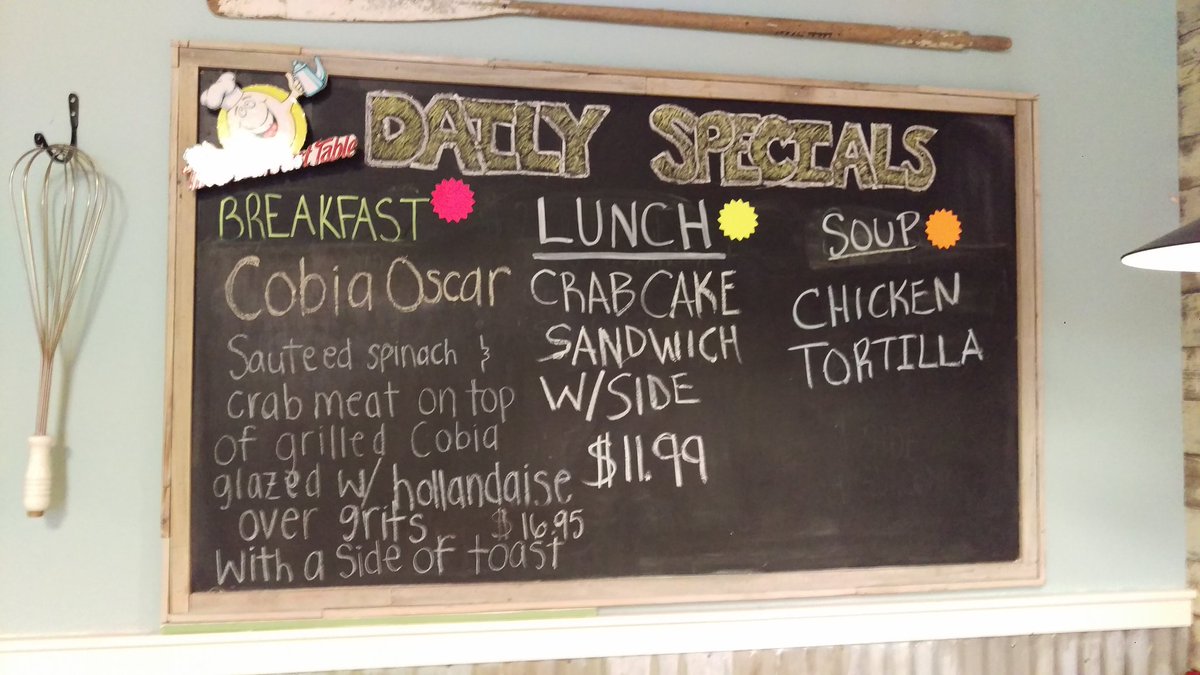 t Table
DAILY SPECIALS
BREAKFAST
Cobia Oscar
Sauteed spinach &
crab meat on top
of grilled Cobia
glazed w/ hollandaise
over grits $16.95
with a side of toast
LUNCH
CRAB CAKE
SANDWICH
W/SIDE
$11.99
SOUP
CHICKEN
TORTILLA